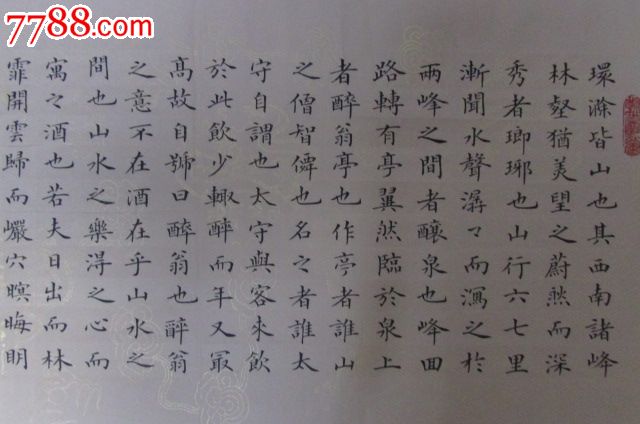 7788.com
環滁皆山也其西南諸峰
林壑猶美望之蔚然而深
秀者瑯琊也山行六七里
漸聞水聲潺〻而瀉之於
兩峰之間者釀泉也峰回
路轉有亭翼然臨於泉上
者醉翁亭也作亭者誰山
之僧智僊也名之者誰太
守自謂也太守與客來飲
於此飲少輙醉而年又冣
高故自號曰醉翁也醉翁
之意不在酒在乎山水之
間也山水之樂淂之心而
寓之酒也若夫日出而林
霏開雲歸而巖穴暝晦明